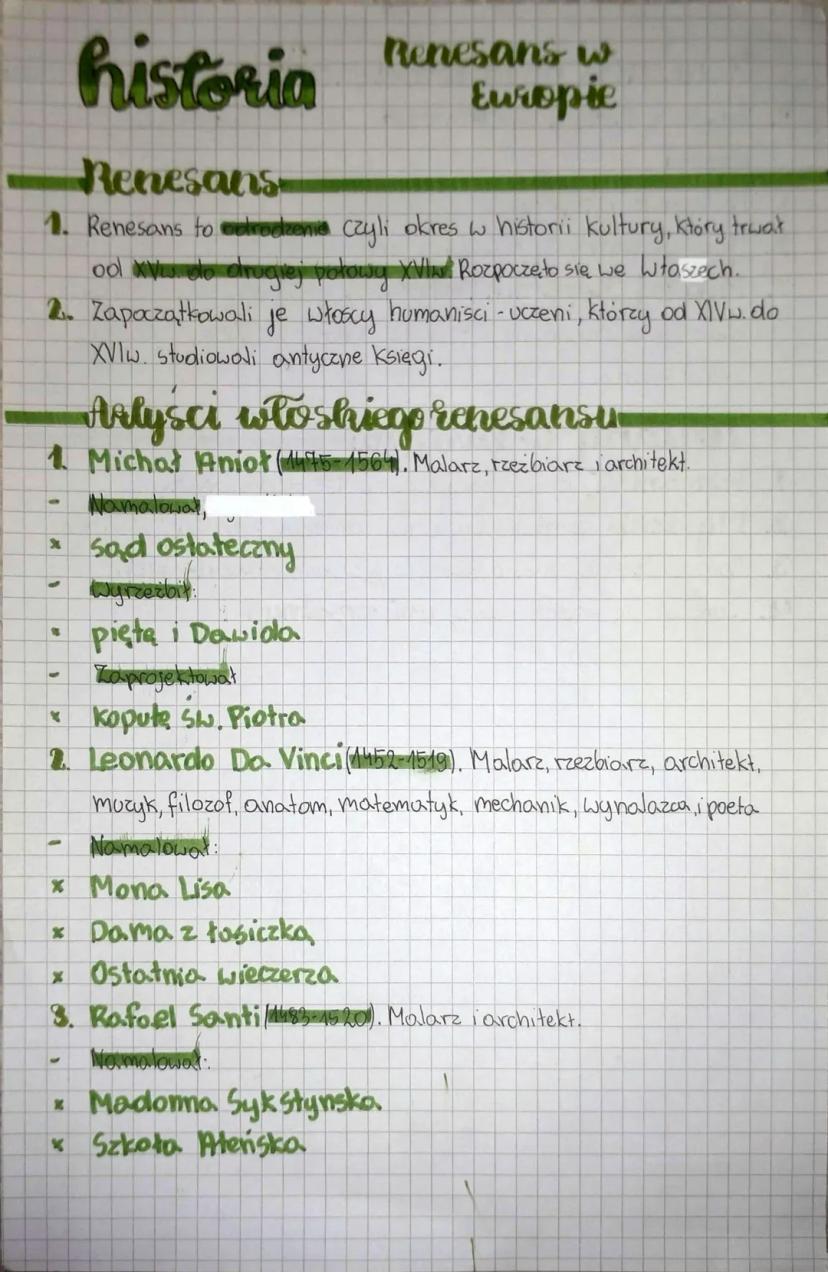 historia
Renesans w
Europie
Renesans
1. Renesans to odrodzenie czyli okres w historii kultury, który trwał
od XVw. do drugiej połowy XVIw. Rozpoczęło się we Włoszech.
2. Zapoczątkowali je włoscy humaniści - uczeni, którzy od XIVw. do
XVIw. studiowali antyczne księgi.
Artyści włoskiego renesansu
1. Michał Anioł (1475-1564). Malarz, rzeźbiarz i architekt.
- Namalował,
x sąd ostateczny
- Wyrzeźbił:
• piętę i Dawida
- Zaprojektował
x kopułę św. Piotra
2. Leonardo Da Vinci (1452-1519). Malarz, rzezbiarz, architekt,
muzyk, filozof, anatom, matematyk, mechanik, wynalazca, i poeta
- Namalował:
x Mona Lisa
x Dama z łasiczką
x Ostatnia wieczerza
3. Rafael Santi (1483-1520). Malarz i architekt.
- Namalował:
x Madonna Sykstyńska
x Szkoła Ateńska